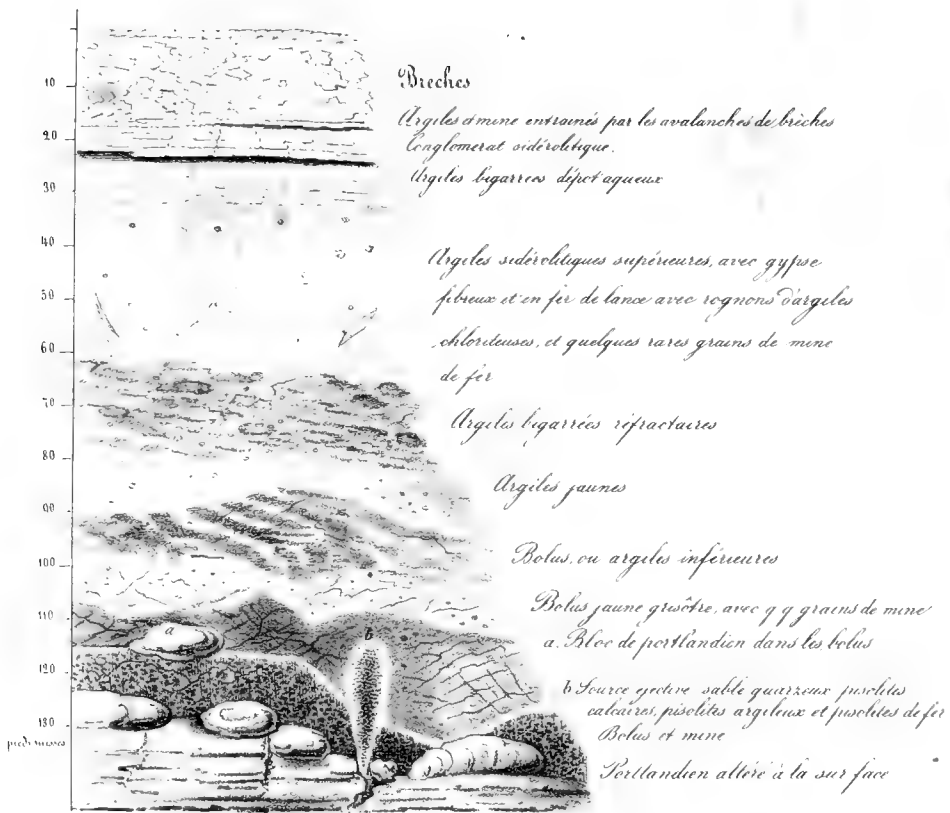 Brèches
10
Argiles et mine entrainés par les avalanches de brèches
20
Conglomérat sidérolitique.
Argiles bigarrées dépot aqueux
30
40
Argiles sidérolitiques supérieures, avec gypse
50
fibreux et en fer de lance avec rognons d'argiles
chloriteuses, et quelques rares grains de mine
60
de fer
70
Argiles bigarrées réfractaires
80
Argiles jaunes
90
100
Bolus, ou argiles inférieures
Bolus jaune grisâtre, avec q q grains de mine
110
a
b
a. Bloc de portlandien dans les bolus
120
b Source ejective sable quarzeux pisolites
calcaires, pisolites argileux et pisolites de fer
130
Bolus et mine
pieds suisses
Portlandien altéré à la sur face